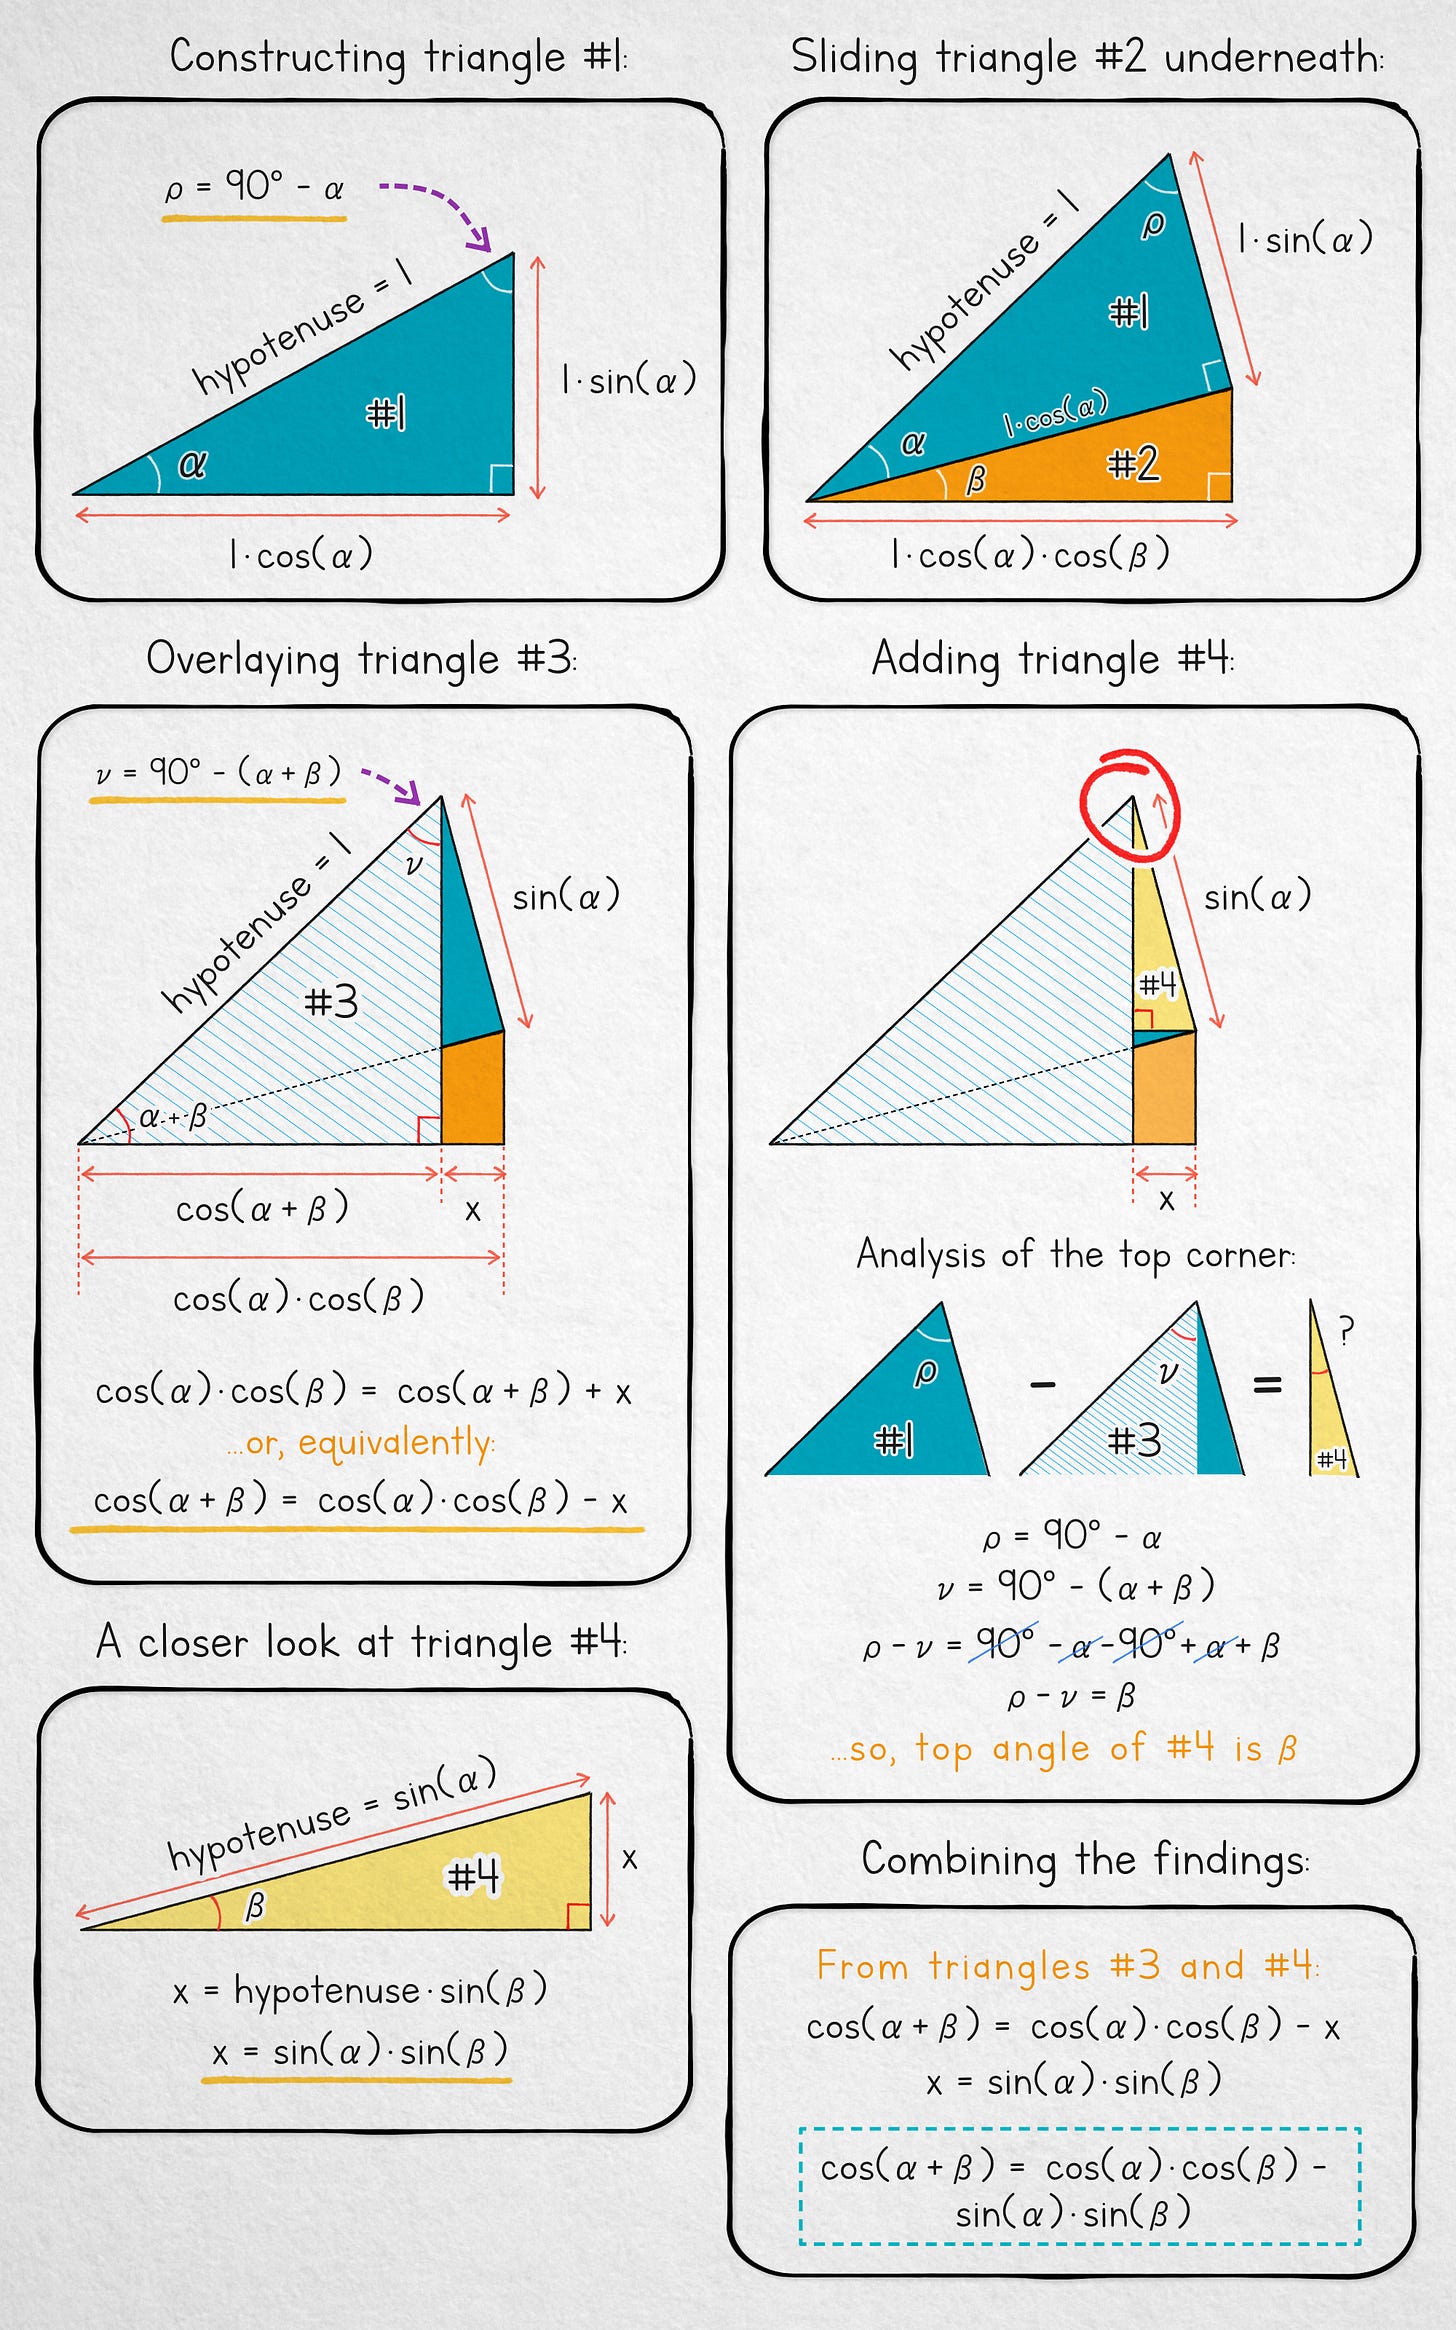 Constructing triangle #1:
ρ = 90° - α
hypotenuse = 1
#1
1·sin(α)
α
1·cos(α)
Sliding triangle #2 underneath:
hypotenuse = 1
ρ
1·sin(α)
#1
1·cos(α)
α
#2
β
1·cos(α)·cos(β)
Overlaying triangle #3:
ν = 90° - (α + β)
hypotenuse = 1
ν
sin(α)
#3
α + β
cos(α + β)
x
cos(α)·cos(β)
cos(α)·cos(β) = cos(α + β) + x
...or, equivalently:
cos(α + β) = cos(α)·cos(β) - x
Adding triangle #4:
sin(α)
#4
x
Analysis of the top corner:
ρ
#1
-
ν
#3
=
?
#4
ρ = 90° - α
ν = 90° - (α + β)
ρ - ν = 90° - α - 90° + α + β
ρ - ν = β
...so, top angle of #4 is β
A closer look at triangle #4:
hypotenuse = sin(α)
#4
x
β
x = hypotenuse·sin(β)
x = sin(α)·sin(β)
Combining the findings:
From triangles #3 and #4:
cos(α + β) = cos(α)·cos(β) - x
x = sin(α)·sin(β)
cos(α + β) = cos(α)·cos(β) -
sin(α)·sin(β)